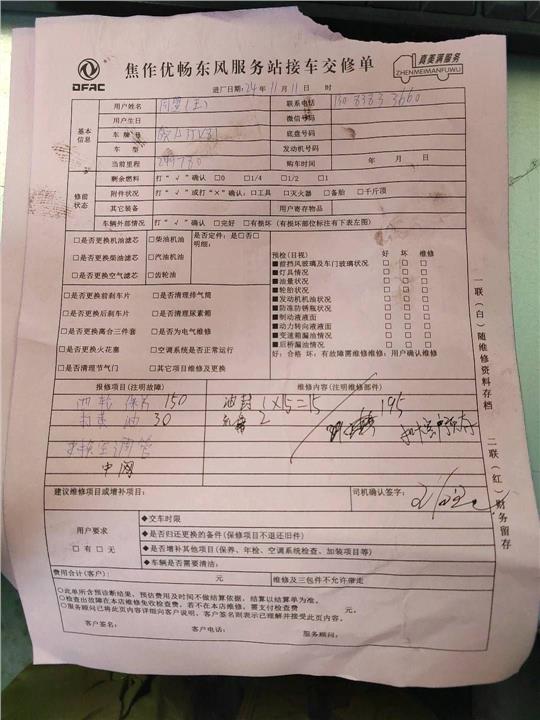 DFAC
焦作优畅东风服务站接车交修单
真美满服务
ZHENMEIMANFUWU
进厂日期:24年11月11日 时
基本信息
用户姓名
联系电话 150 8383 3660
用户生日
微信号码
车牌号
底盘号码
发动机号码
当前里程
购车时间 年 月 日
修前状态
剩余燃料 打“√”确认 □0 □1/4 □1/2 □1
附件状况 打“√”或打“×”确认:□工具 □灭火器 □备胎 □千斤顶
其它装备
用户寄存物品
车辆外部情况 打“√”确认 □完好 □有损坏(有损坏部位标注有下表左图)
□是否更换机油滤芯 □柴油机油
□是否更换柴油滤芯 □汽油机油
□是否更换空气滤芯 □齿轮油
是否定件:是□否□
明细:
□是否更换前刹车片 □是否清理排气筒
□是否更换后刹车片 □是否清理尿素箱
□是否更换离合三件套 □是否为电气维修
□是否更换火花塞 □空调系统是否正常运行
□是否清理节气门 □其它项目维修及更换
预检(目视) 好 坏 维修
■前挡风玻璃及车门玻璃状况 □ □ □
■灯具情况 □ □ □
■油量状况 □ □ □
■轮胎状况 □ □ □
■发动机机油状况 □ □ □
■防冻防锈瓶状况 □ □ □
■制动液液面 □ □ □
■动力转向液液面 □ □ □
■变速箱漏油情况 □ □ □
■后桥漏油情况 □ □ □
好:合格 坏:有故障需维修维修:用户确认维修
报修项目(注明故障) 维修内容(注明维修部件)
四轮保养 150 油封 1×15=15
黄油 30 2 195
中网
建议维修项目或增补项目:
司机确认签字:
用户要求
□有 □无
◆交车时限
◆是否归还更换的备件(保修项目不退还旧件)
◆是否增补其他项目(保养、年检、空调系统检查、加装项目等)
◆车辆是否需要清洁:
费用合计(客户): 元 维修及三包件不允许带走
○此单所含预诊断结果、预估费用及时间不做结算依据,结算以结算单为准。
○检查出故障在本店维修免收检查费,若不在本店维修,需支付检查费 元。
○服务顾问已将此页内容详细向客户说明、客户签名则表示已理解并接受此页内容。
客户签名: 客户电话: 服务顾问:
一联(白)随维修资料存档
二联(红)财务留存